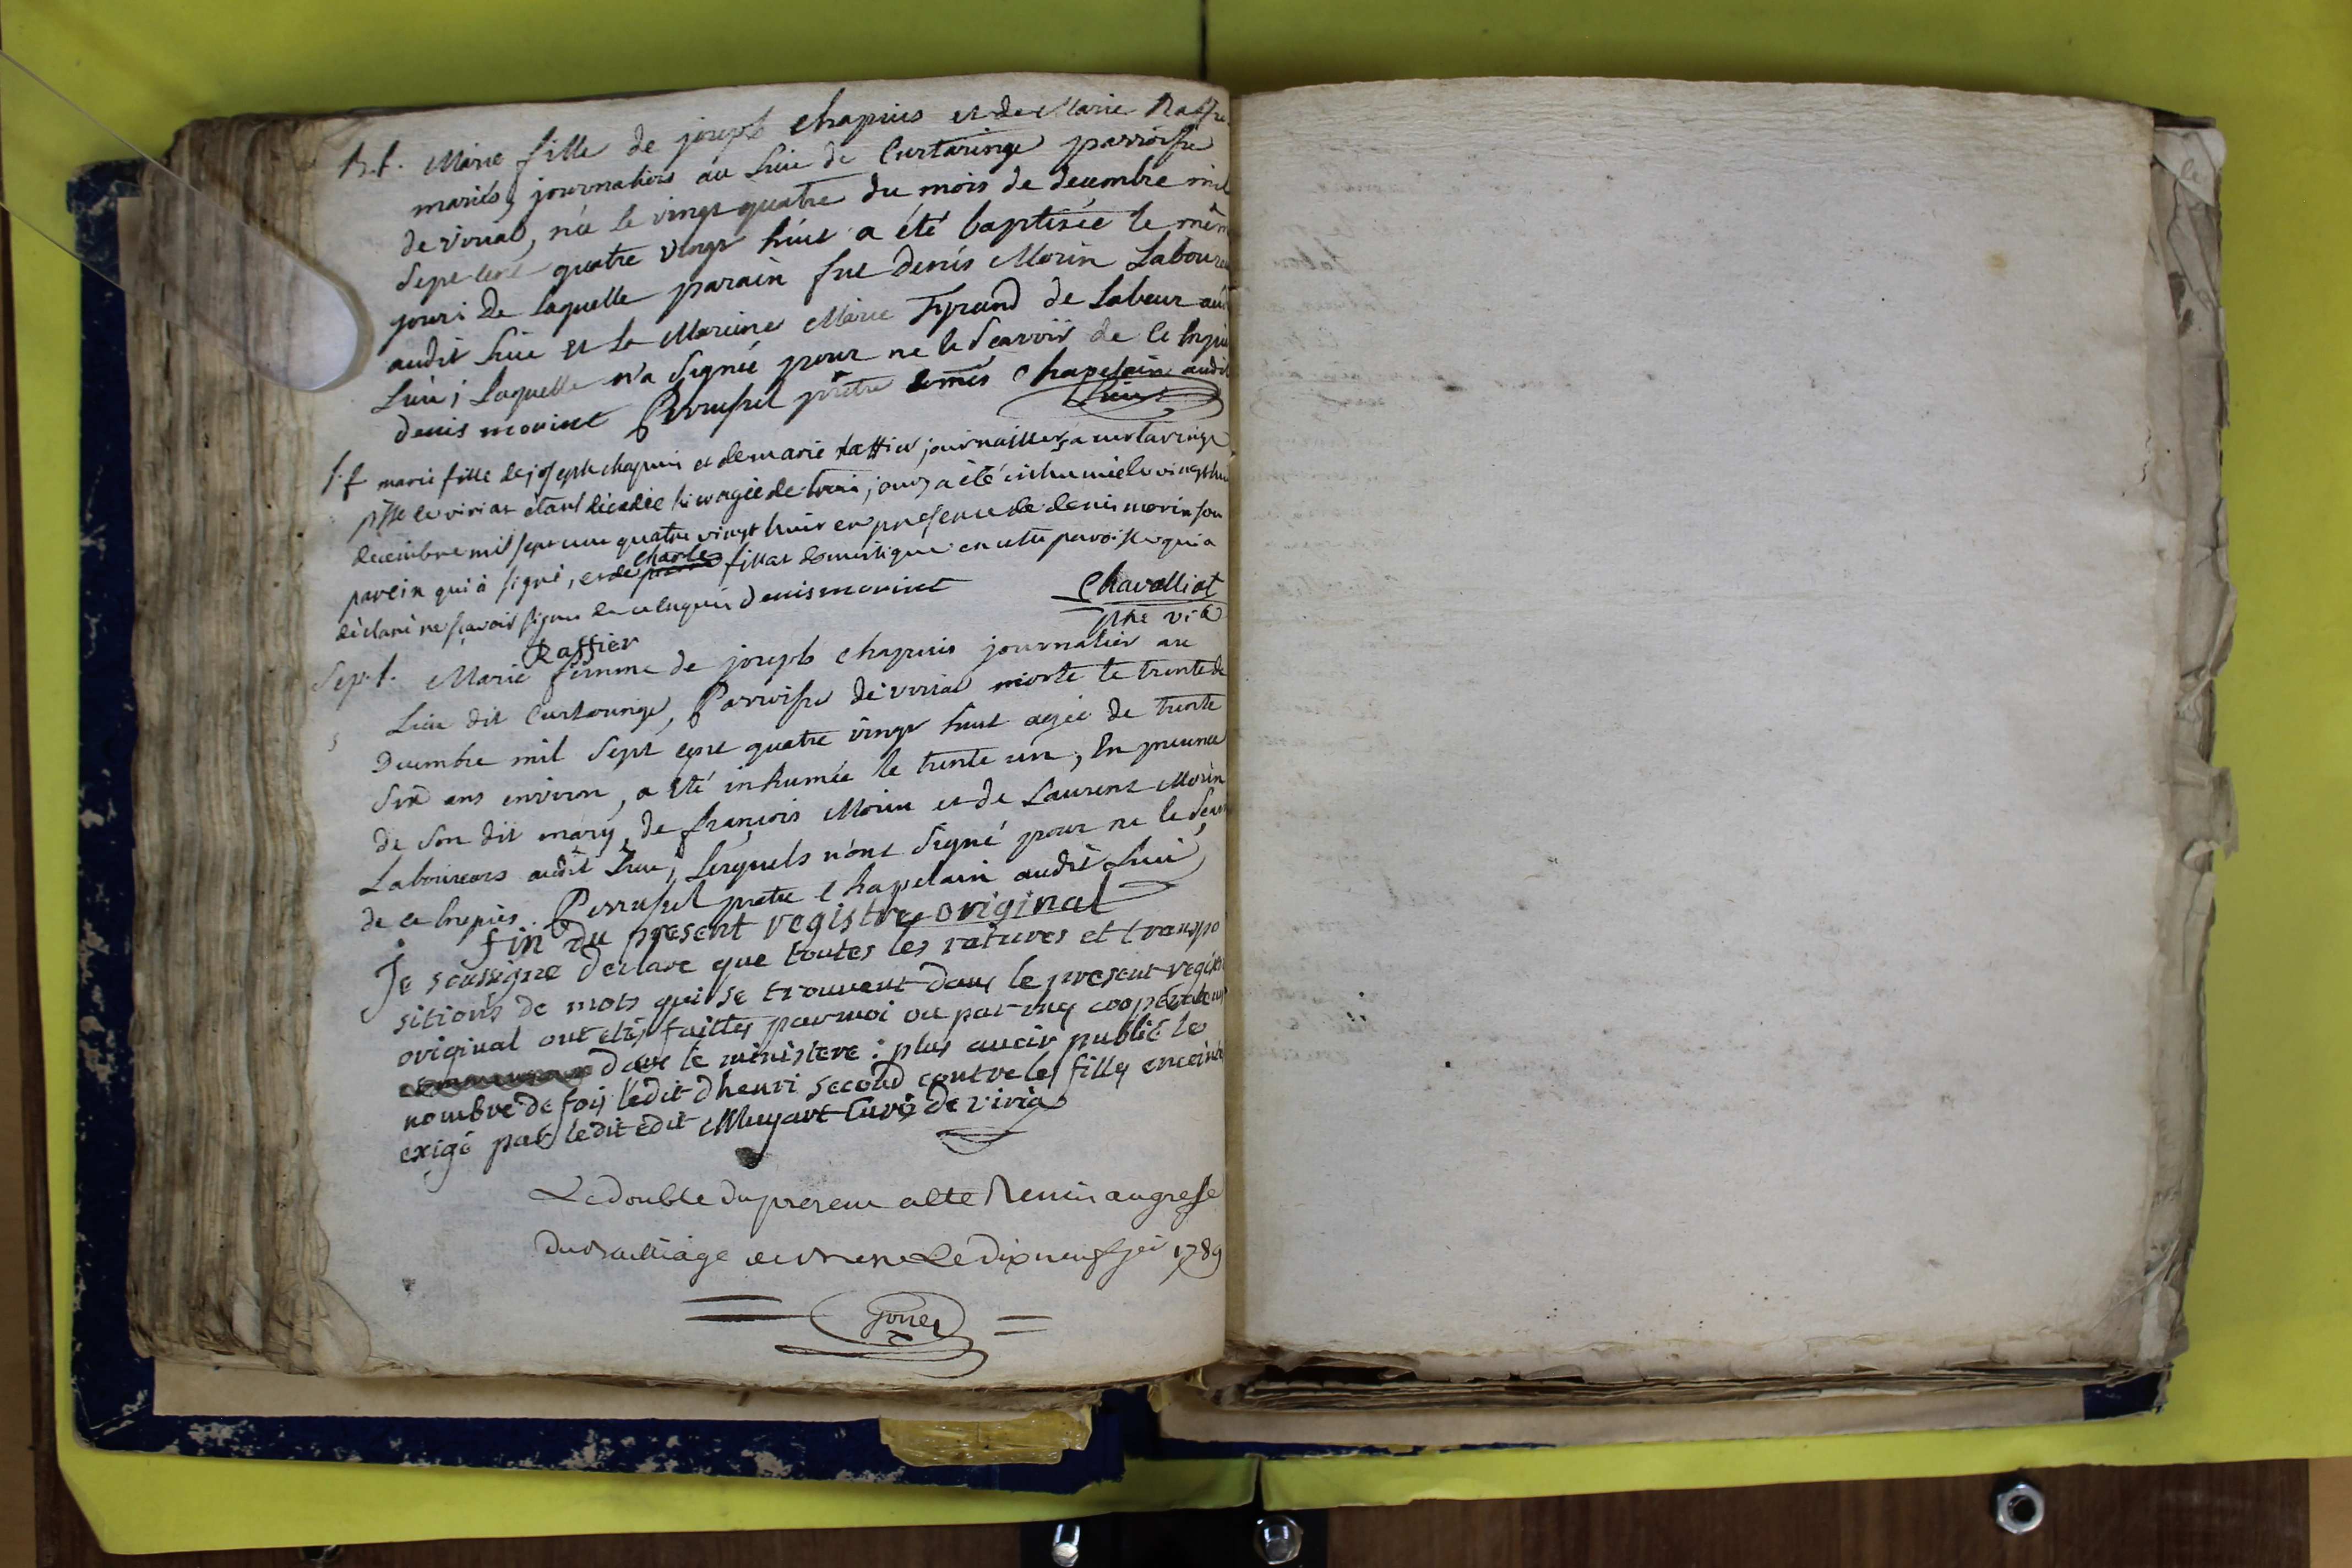 B.f. Marie fille de joseph Chapuis et de Marie Raffie
mariés, journaliers au Lieu de Curtaringe parroisse
de viriat, née le vingt quatre du mois de decembre mil
Sept cent quatre vingt huit a été baptisée le même
jour; De laquelle parain fut Denis Morin Laboureur
audit Lieu et la Mareine Marie Tyrand de Labeur audit
Lieu; Laquelle n'a Signée pour ne le Scavoir de ce Enquis
denis morinet Perrussel prêtre Chapelain audit
Lieu
S.f marie fille de joseph chapuis et de marie raffier journalliers a curtaringe
psse de viriat étant décédée hier agée de trois jours a été inhumée le vingt huit
decembre mil sept cent quatre vingt huit en presence de denis morin son
parein qui à signé, et de charles fillat domestique en cette paroisse qui a
déclaré ne sçavoir signer de ce enquis denis morinet
Chavalliat
ptre vic
Raffier
Sep.f. Marie femme de joseph chapuis journalier au
Lieu dit Curtaringe, Parroisse de viriat morte le trente de
Decembre mil Sept cent quatre vingt huit agée de trente
Six ans environ, a été inhumée le trente un, En presence
de Son dit mary, de françois Morin et de Laurent Morin
Laboureurs audit Lieu, Lesquels n'ont Signé pour ne le Scavoir
de ce Enquis. Perrussel pretre Chapelain audit Lieu
fin du present registre original
Je soussigné declare que toutes les ratures et transpo
sitions de mots qui se trouvent dans le present registre
original ont etés faittes par moi ou par mes coopérateurs
dans le ministere: plus avoir publié le
nombre de fois l'édit d'henri second contre les filles enceintes
exigé par ledit édit Muyart Curé de viriat
Le double du present a été Remis au greffe
du Bailliage de Bresse Le dix neuf jer 1789